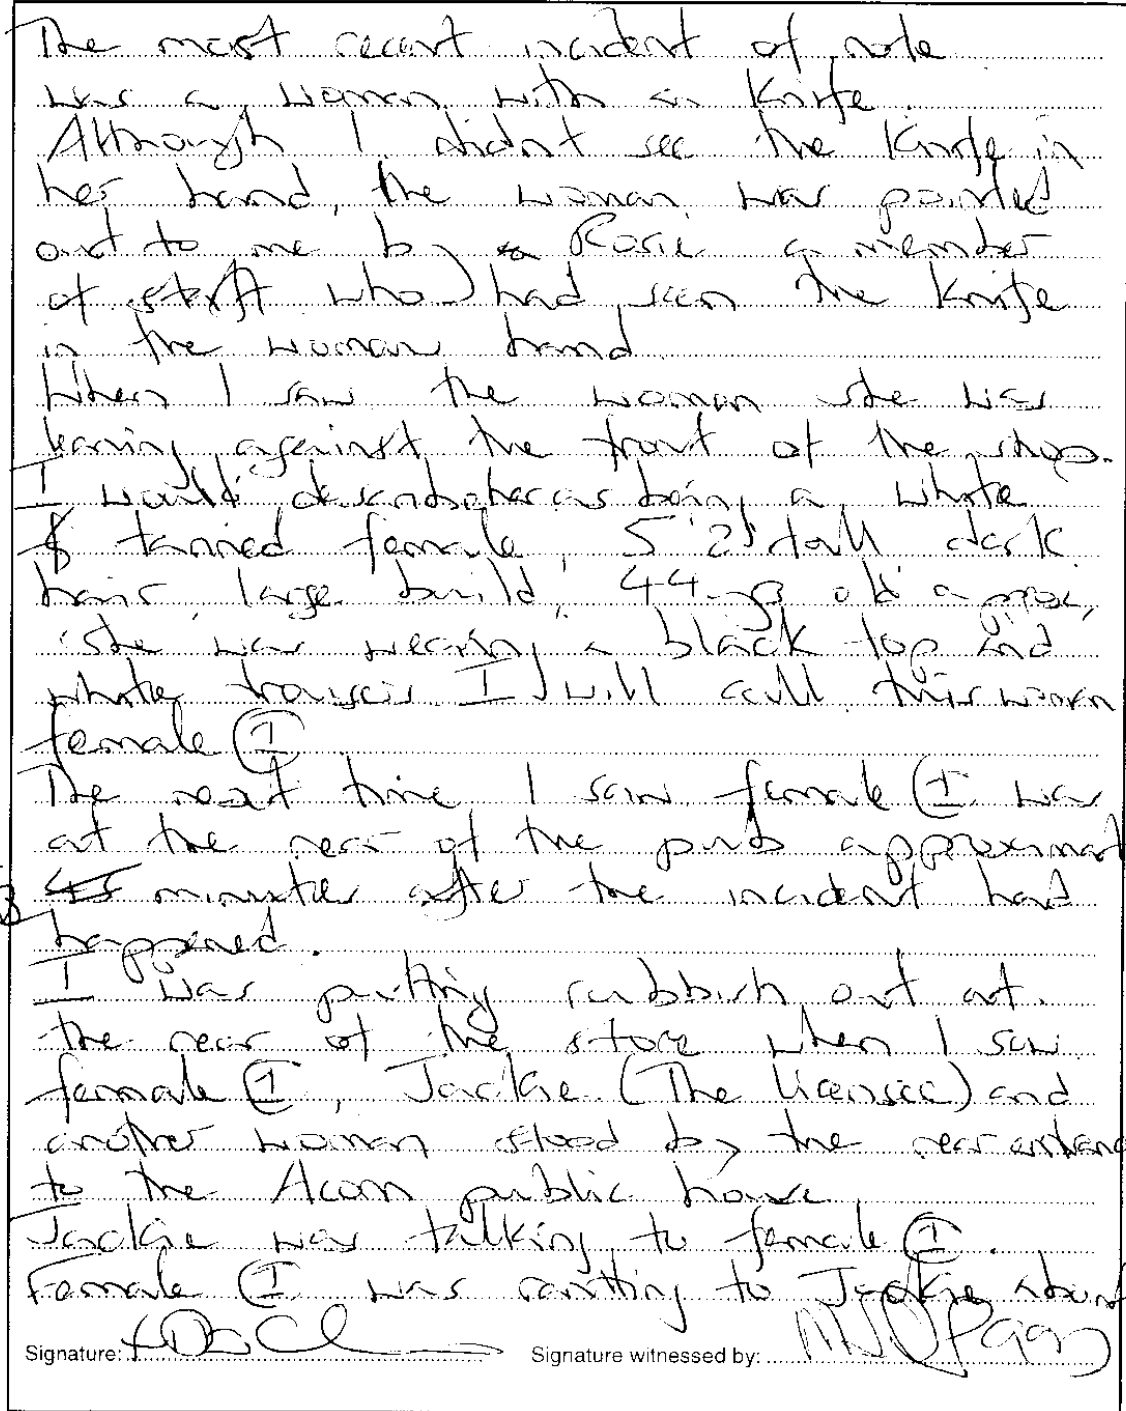 The most recent incident of note
was a woman with a Knife.
Although I didnt see the Knife in
her hand, the woman was pointed
out to me by Rosie a member
of staff who had seen the Knife
in the woman hand
When I saw the woman she was
leaning against the front of the shop.
I would describe her as being a white
tanned female, 5'2" tall dark
hair, large build, 44 yrs old approx,
she was wearing a black top and
white trousers I will call this woman
female ①
The next time I saw female ① was
at the rear of the pub approximat
minutes after the incident had
happened.
I was putting rubbish out at
the rear of the store when I saw
female ①, Jackie (The licensee) and
another woman stood by the rear entranc
to the Acorn public house.
Jackie was talking to female ①.
Female ① was ranting to Jackie about
Signature: Signature witnessed by: